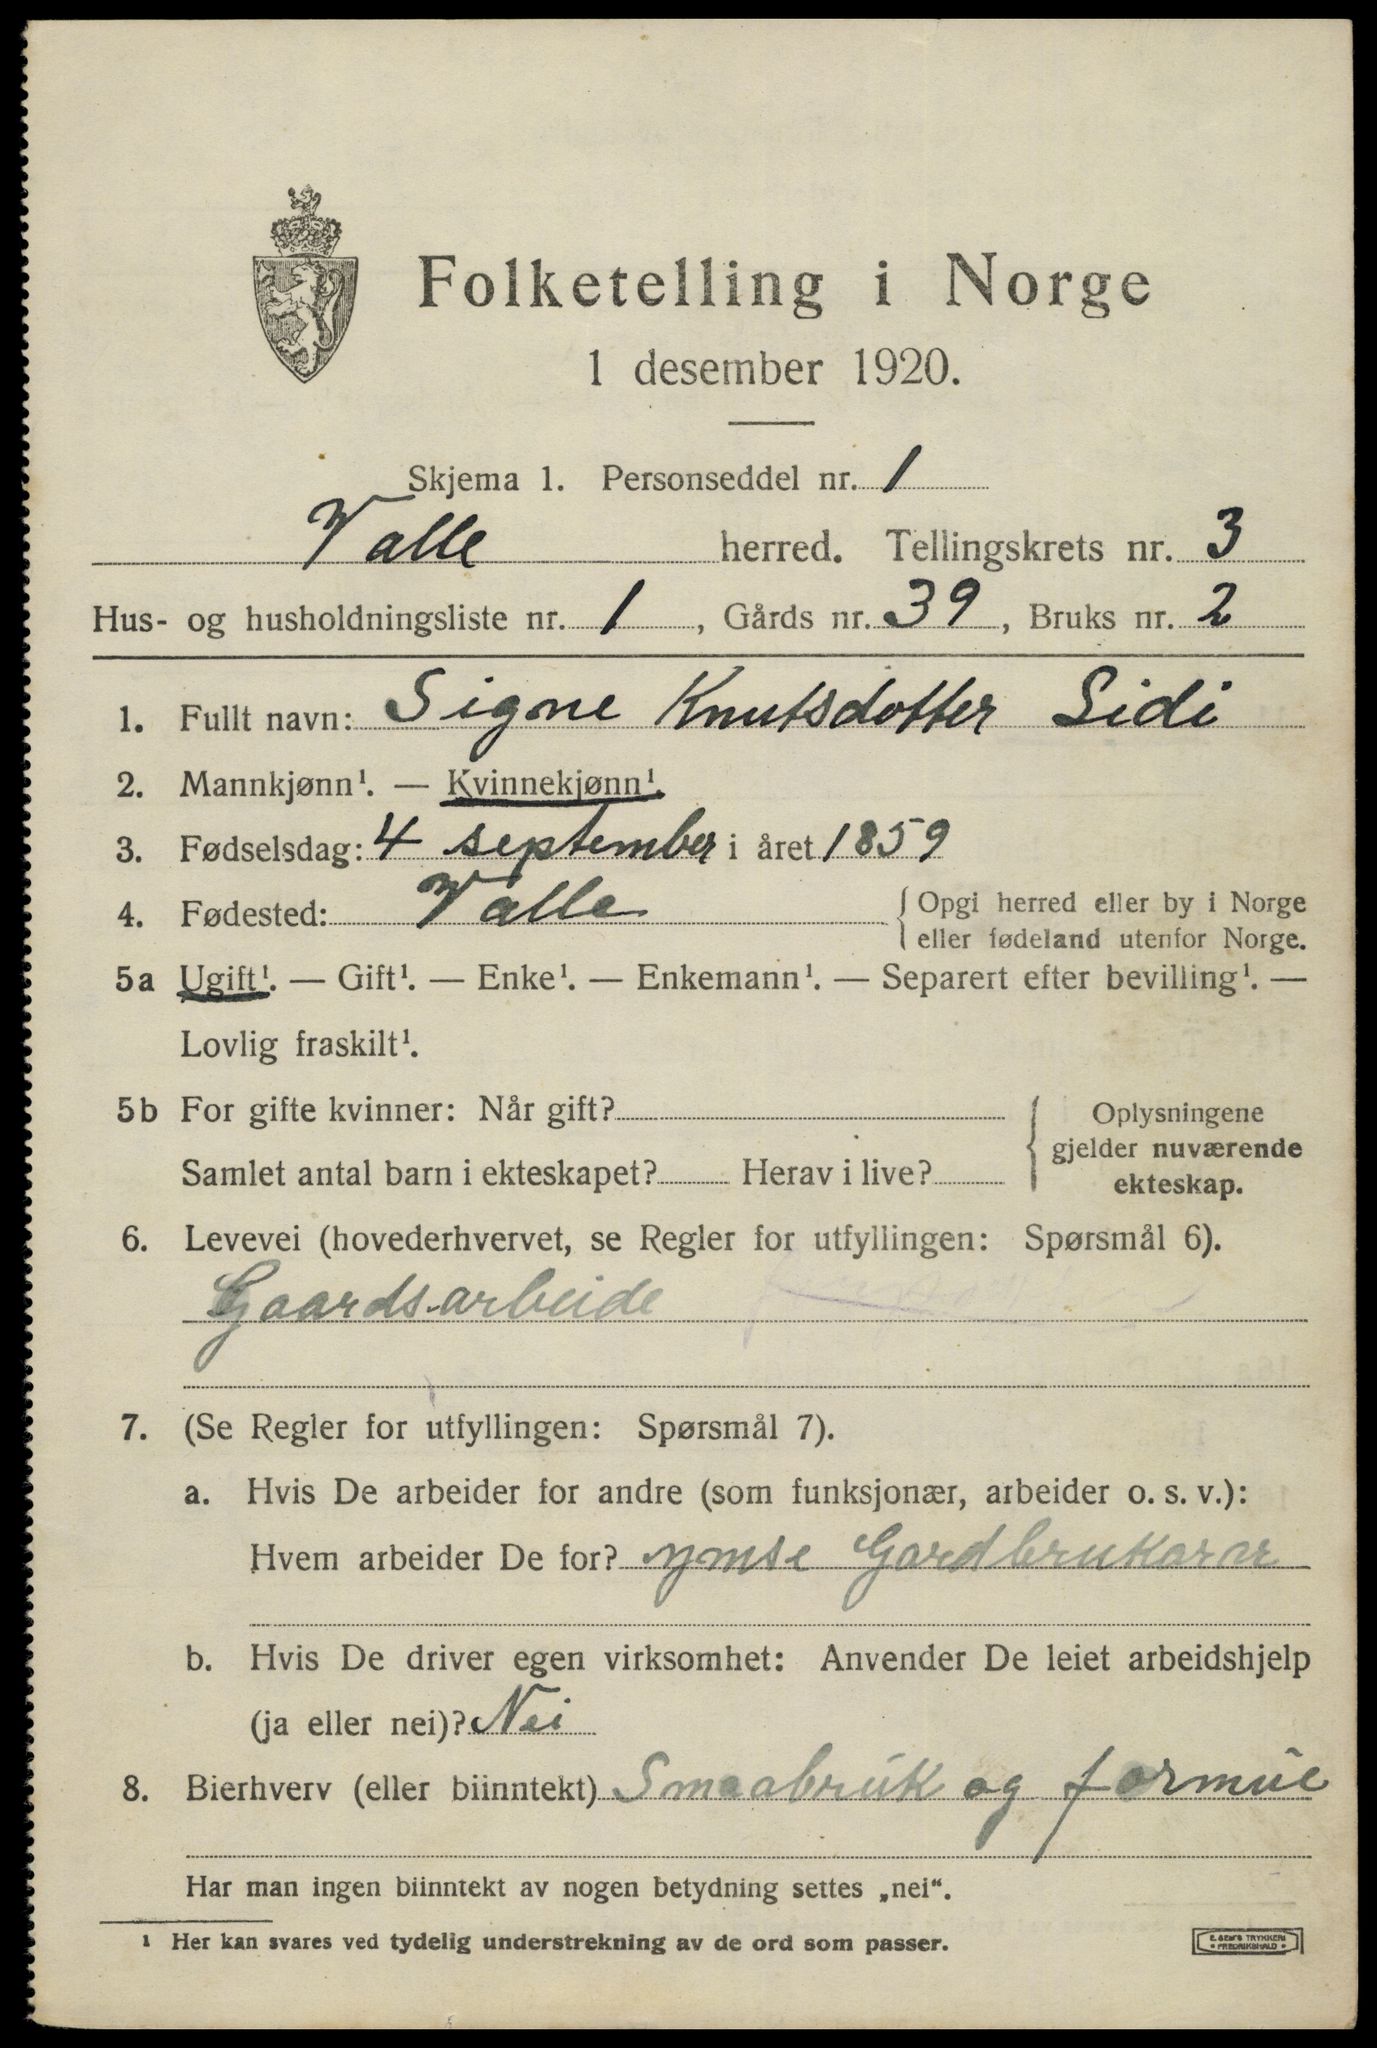 Folketelling i Norge
1 desember 1920.
Skjema 1. Personseddel nr. 1
Valle herred. Tellingskrets nr. 3
Hus- og husholdningsliste nr. 1, Gårds nr. 39, Bruks nr. 2
1. Fullt navn: Signe Knutsdotter Lidi
2. Mannkjønn¹. — Kvinnekjønn¹.
3. Fødselsdag: 4 september i året 1859
4. Fødested: Valle { Opgi herred eller by i Norge
eller fødeland utenfor Norge.
5a Ugift¹. — Gift¹. — Enke¹. — Enkemann¹. — Separert efter bevilling¹. —
Lovlig fraskilt¹.
5b For gifte kvinner: Når gift?
Samlet antal barn i ekteskapet? Herav i live?
{ Oplysningene
gjelder nuværende
ekteskap.
6. Levevei (hovederhvervet, se Regler for utfyllingen: Spørsmål 6).
Gaardsarbeide
7. (Se Regler for utfyllingen: Spørsmål 7).
a. Hvis De arbeider for andre (som funksjonær, arbeider o. s. v.):
Hvem arbeider De for? ymse Gardbrukarar
b. Hvis De driver egen virksomhet: Anvender De leiet arbeidshjelp
(ja eller nei)? Nei
8. Bierhverv (eller biinntekt) Smaabruk og formue
Har man ingen biinntekt av nogen betydning settes „nei“.
¹ Her kan svares ved tydelig understrekning av de ord som passer.
E. SEM'S TRYKKERI
FREDRIKSHALD